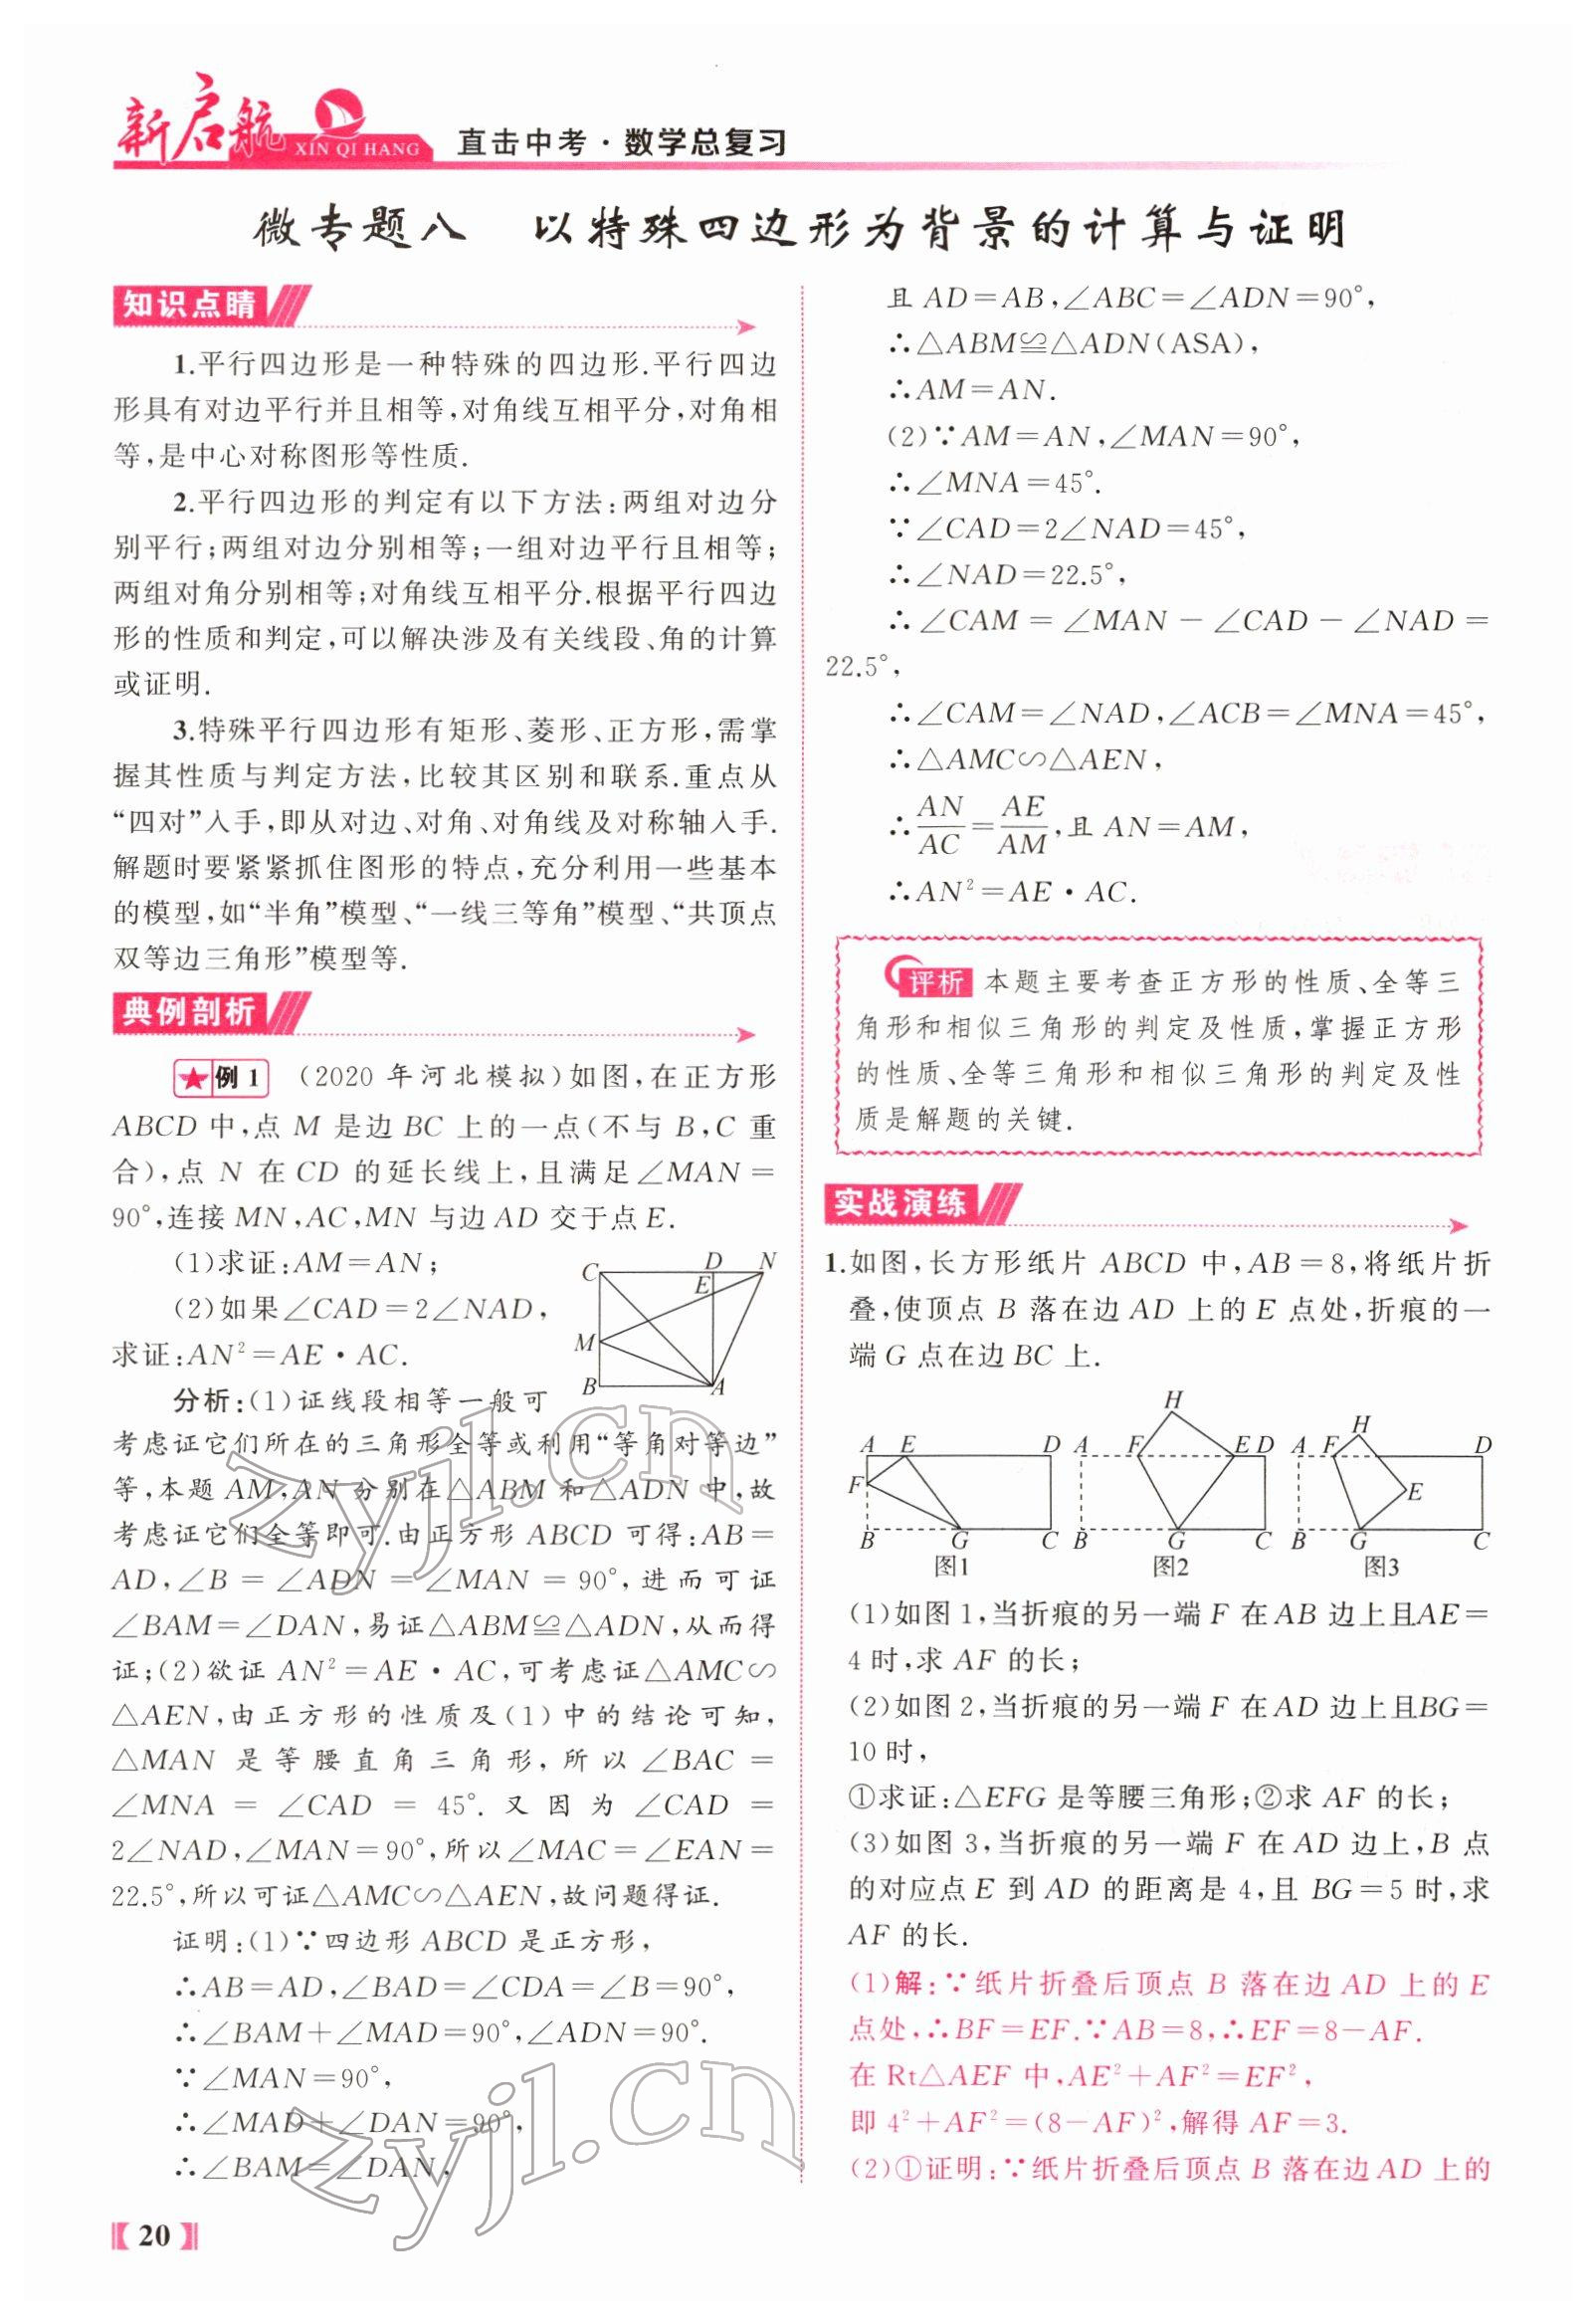 新启航
XIN QI HANG
直击中考·数学总复习
微专题八 以特殊四边形为背景的计算与证明
知识点睛
1.平行四边形是一种特殊的四边形.平行四边
形具有对边平行并且相等,对角线互相平分,对角相
等,是中心对称图形等性质.
2.平行四边形的判定有以下方法:两组对边分
别平行;两组对边分别相等;一组对边平行且相等;
两组对角分别相等;对角线互相平分.根据平行四边
形的性质和判定,可以解决涉及有关线段、角的计算
或证明.
3.特殊平行四边形有矩形、菱形、正方形,需掌
握其性质与判定方法,比较其区别和联系.重点从
“四对”入手,即从对边、对角、对角线及对称轴入手.
解题时要紧紧抓住图形的特点,充分利用一些基本
的模型,如“半角”模型、“一线三等角”模型、“共顶点
双等边三角形”模型等.
典例剖析
★例1 (2020年河北模拟)如图,在正方形
ABCD中,点M是边BC上的一点(不与B,C重
合),点N在CD的延长线上,且满足∠MAN=
90°,连接MN,AC,MN与边AD交于点E.
(1)求证:AM=AN;
(2)如果∠CAD=2∠NAD,
求证:AN²=AE·AC.
C D N
E
M
B A
分析:(1)证线段相等一般可
考虑证它们所在的三角形全等或利用“等角对等边”
等,本题AM,AN分别在△ABM和△ADN中,故
考虑证它们全等即可.由正方形ABCD可得:AB=
AD,∠B=∠ADN=∠MAN=90°,进而可证
∠BAM=∠DAN,易证△ABM≌△ADN,从而得
证;(2)欲证AN²=AE·AC,可考虑证△AMC∽
△AEN,由正方形的性质及(1)中的结论可知,
△MAN是等腰直角三角形,所以∠BAC=
∠MNA=∠CAD=45°.又因为∠CAD=
2∠NAD,∠MAN=90°,所以∠MAC=∠EAN=
22.5°,所以可证△AMC∽△AEN,故问题得证.
证明:(1)∵四边形ABCD是正方形,
∴AB=AD,∠BAD=∠CDA=∠B=90°,
∴∠BAM+∠MAD=90°,∠ADN=90°.
∵∠MAN=90°,
∴∠MAD+∠DAN=90°,
∴∠BAM=∠DAN,
且AD=AB,∠ABC=∠ADN=90°,
∴△ABM≌△ADN(ASA),
∴AM=AN.
(2)∵AM=AN,∠MAN=90°,
∴∠MNA=45°.
∵∠CAD=2∠NAD=45°,
∴∠NAD=22.5°,
∴∠CAM=∠MAN-∠CAD-∠NAD=
22.5°,
∴∠CAM=∠NAD,∠ACB=∠MNA=45°,
∴△AMC∽△AEN,
∴AN/AC=AE/AM,且AN=AM,
∴AN²=AE·AC.
评析 本题主要考查正方形的性质、全等三
角形和相似三角形的判定及性质,掌握正方形
的性质、全等三角形和相似三角形的判定及性
质是解题的关键.
实战演练
1.如图,长方形纸片ABCD中,AB=8,将纸片折
叠,使顶点B落在边AD上的E点处,折痕的一
端G点在边BC上.
A E D F B G C 图1
H A F E D B G C 图2
H A F D E B G C 图3
(1)如图1,当折痕的另一端F在AB边上且AE=
4时,求AF的长;
(2)如图2,当折痕的另一端F在AD边上且BG=
10时,
①求证:△EFG是等腰三角形;②求AF的长;
(3)如图3,当折痕的另一端F在AD边上,B点
的对应点E到AD的距离是4,且BG=5时,求
AF的长.
(1)解:∵纸片折叠后顶点B落在边AD上的E
点处,∴BF=EF.∵AB=8,∴EF=8-AF.
在Rt△AEF中,AE²+AF²=EF²,
即4²+AF²=(8-AF)²,解得AF=3.
(2)①证明:∵纸片折叠后顶点B落在边AD上的
20
zyjl.cn
zyjl.cn